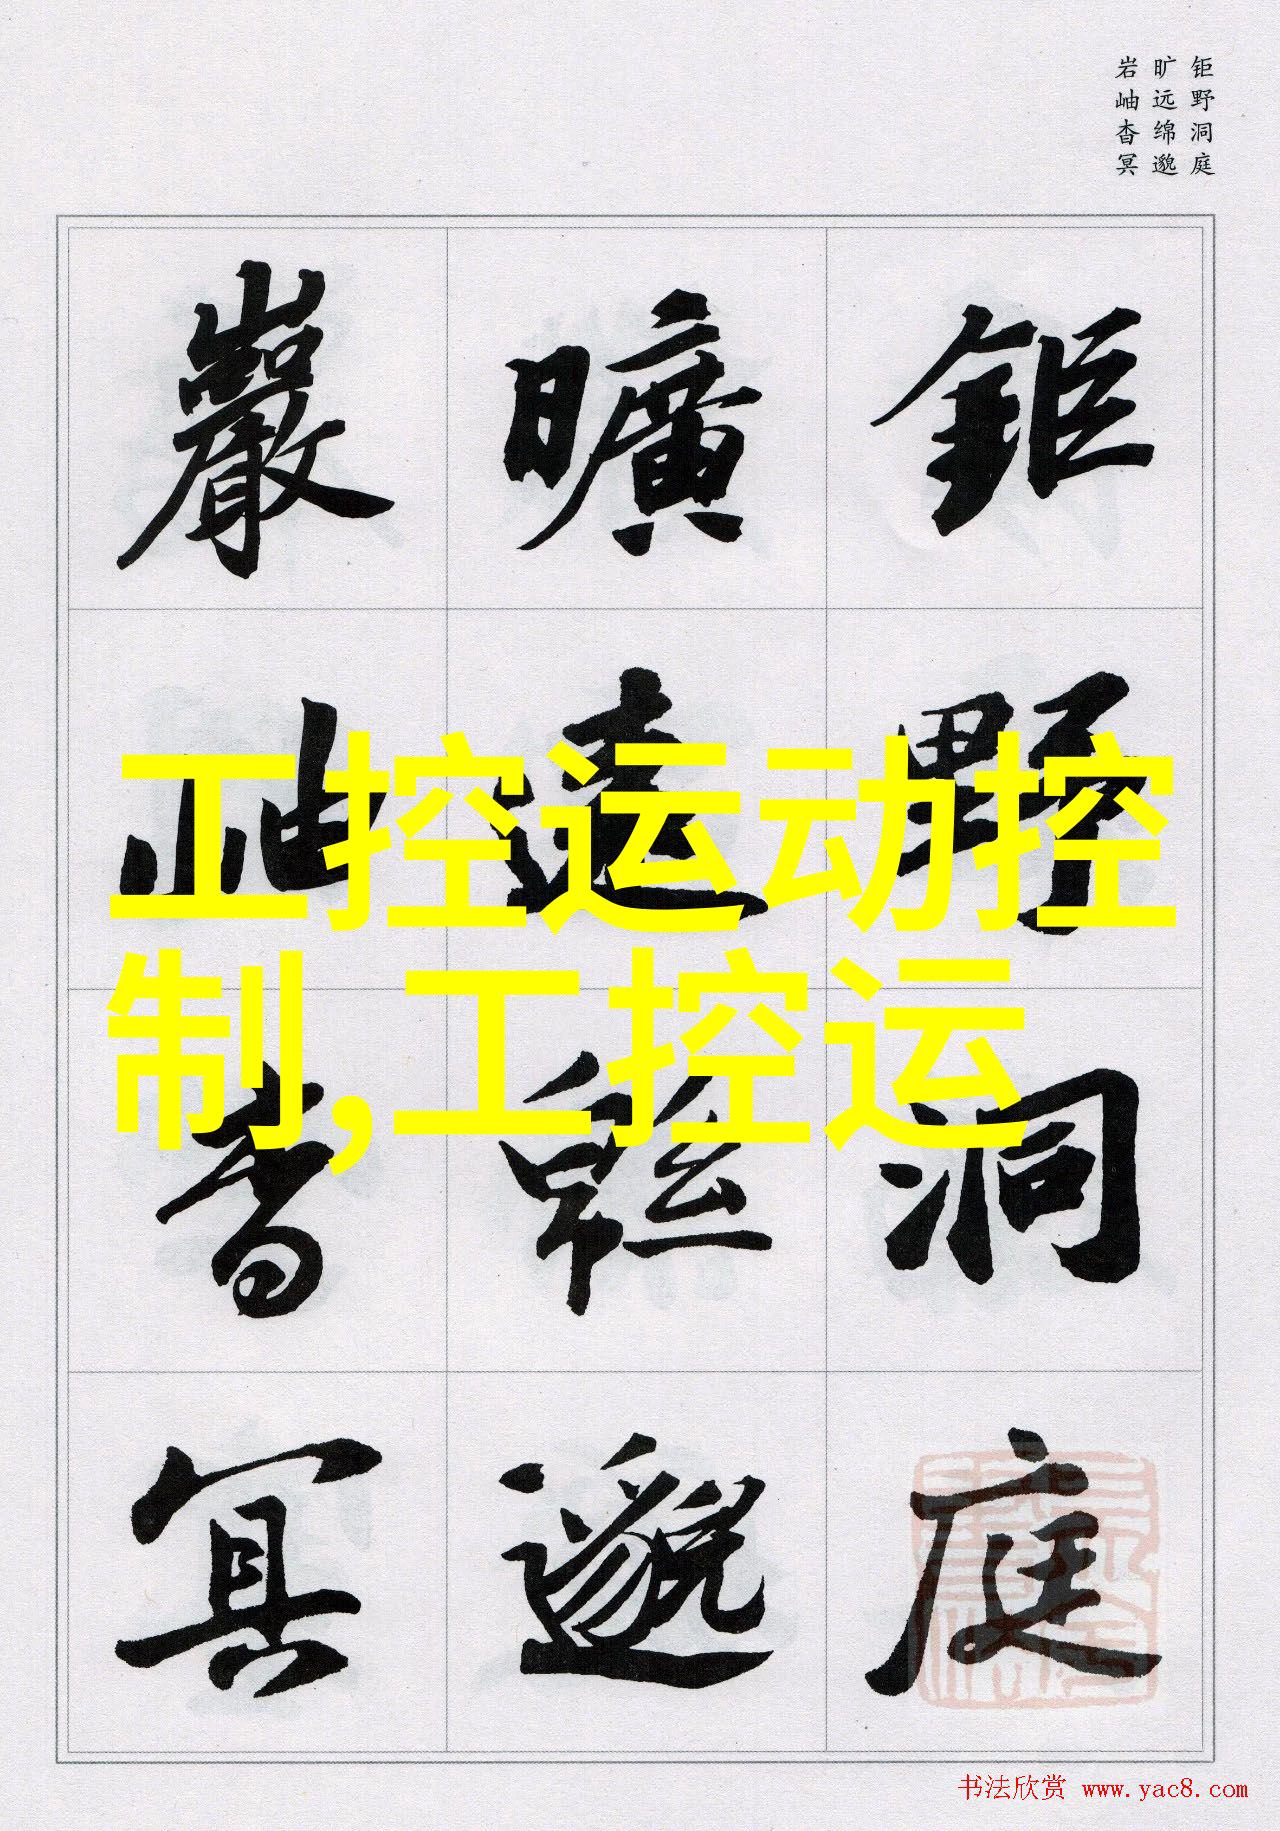 钜野洞庭
旷远绵邈
岩岫杳冥
鉅野洞庭
曠遠緜邈
巖岫杳冥
工控运动控
制,工控运
书法欣赏 www.yac8.com